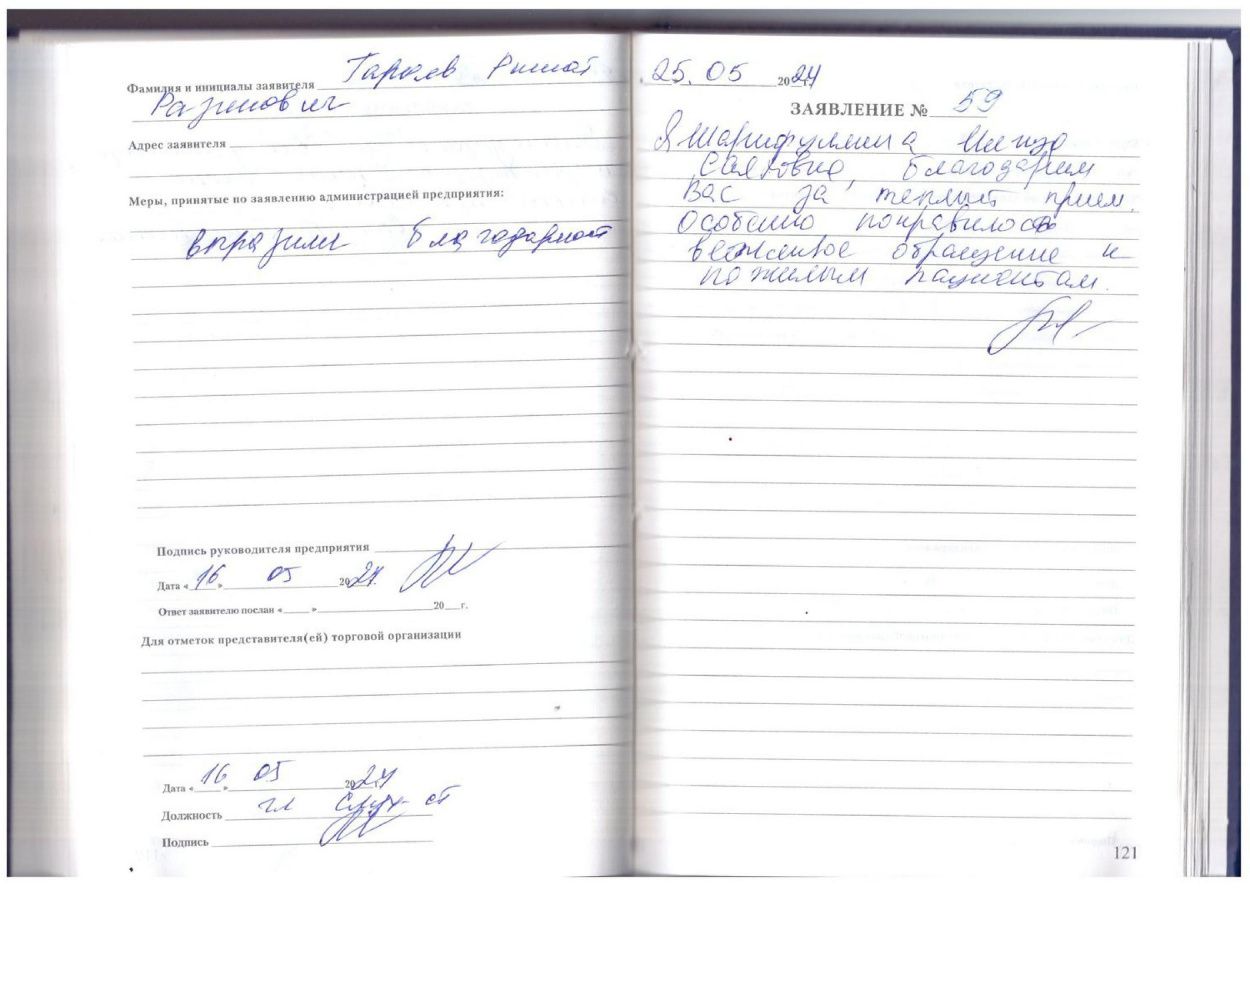 Фамилия и инициалы заявителя Гараев Ринат
Разинович
Адрес заявителя
Меры, принятые по заявлению администрацией предприятия:
выразили благодарность
Подпись руководителя предприятия
Дата «16» 05 2024
Ответ заявителю послан « » 20 г.
Для отметок представителя(ей) торговой организации
Дата «16» 05 2024
Должность гл
Подпись
25.05 2024
ЗАЯВЛЕНИЕ № 59
Я Шарифуллина
благодарим
Вас за теплый прием.
Особенно понравилось
вежливое обращение к
пожилым пациентам.
121